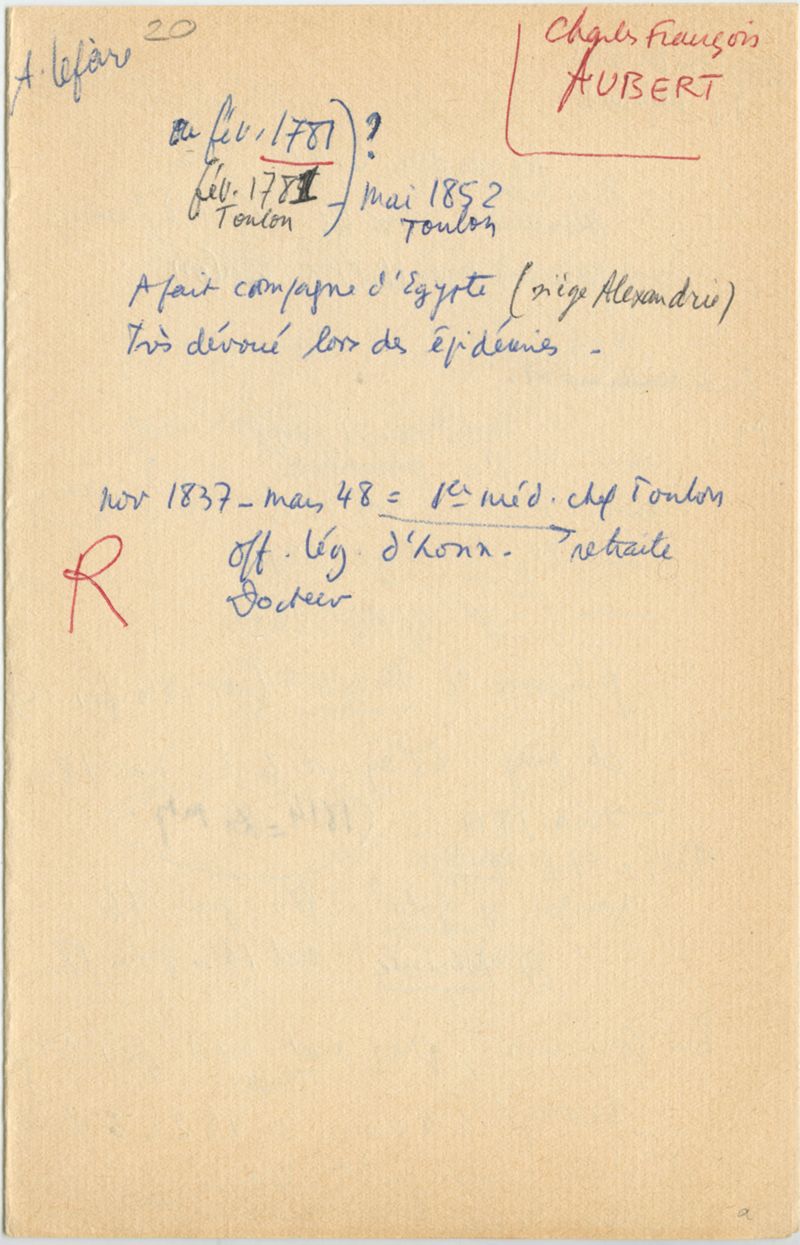 20
A. Lefèvre
Charles François
AUBERT
fév. 1781 ?
fév. 1781 - mai 1852
Toulon Toulon
A fait campagne d'Egypte (siège Alexandrie)
Très dévoué lors des épidémies -
nov 1837 - mars 48 = 1er méd. chef Toulon
off. lég. d'honn. retraite
Docteur
R
a